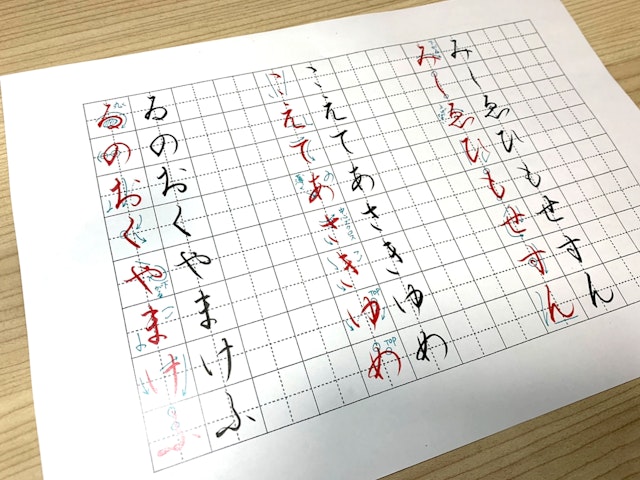 みしゑひもせすん
みしゑひもせすん
こえてあさきゆめ
こえてあさきゆめ
TOP
TOP
ゐのおくやまけふ
ゐのおくやまけふ